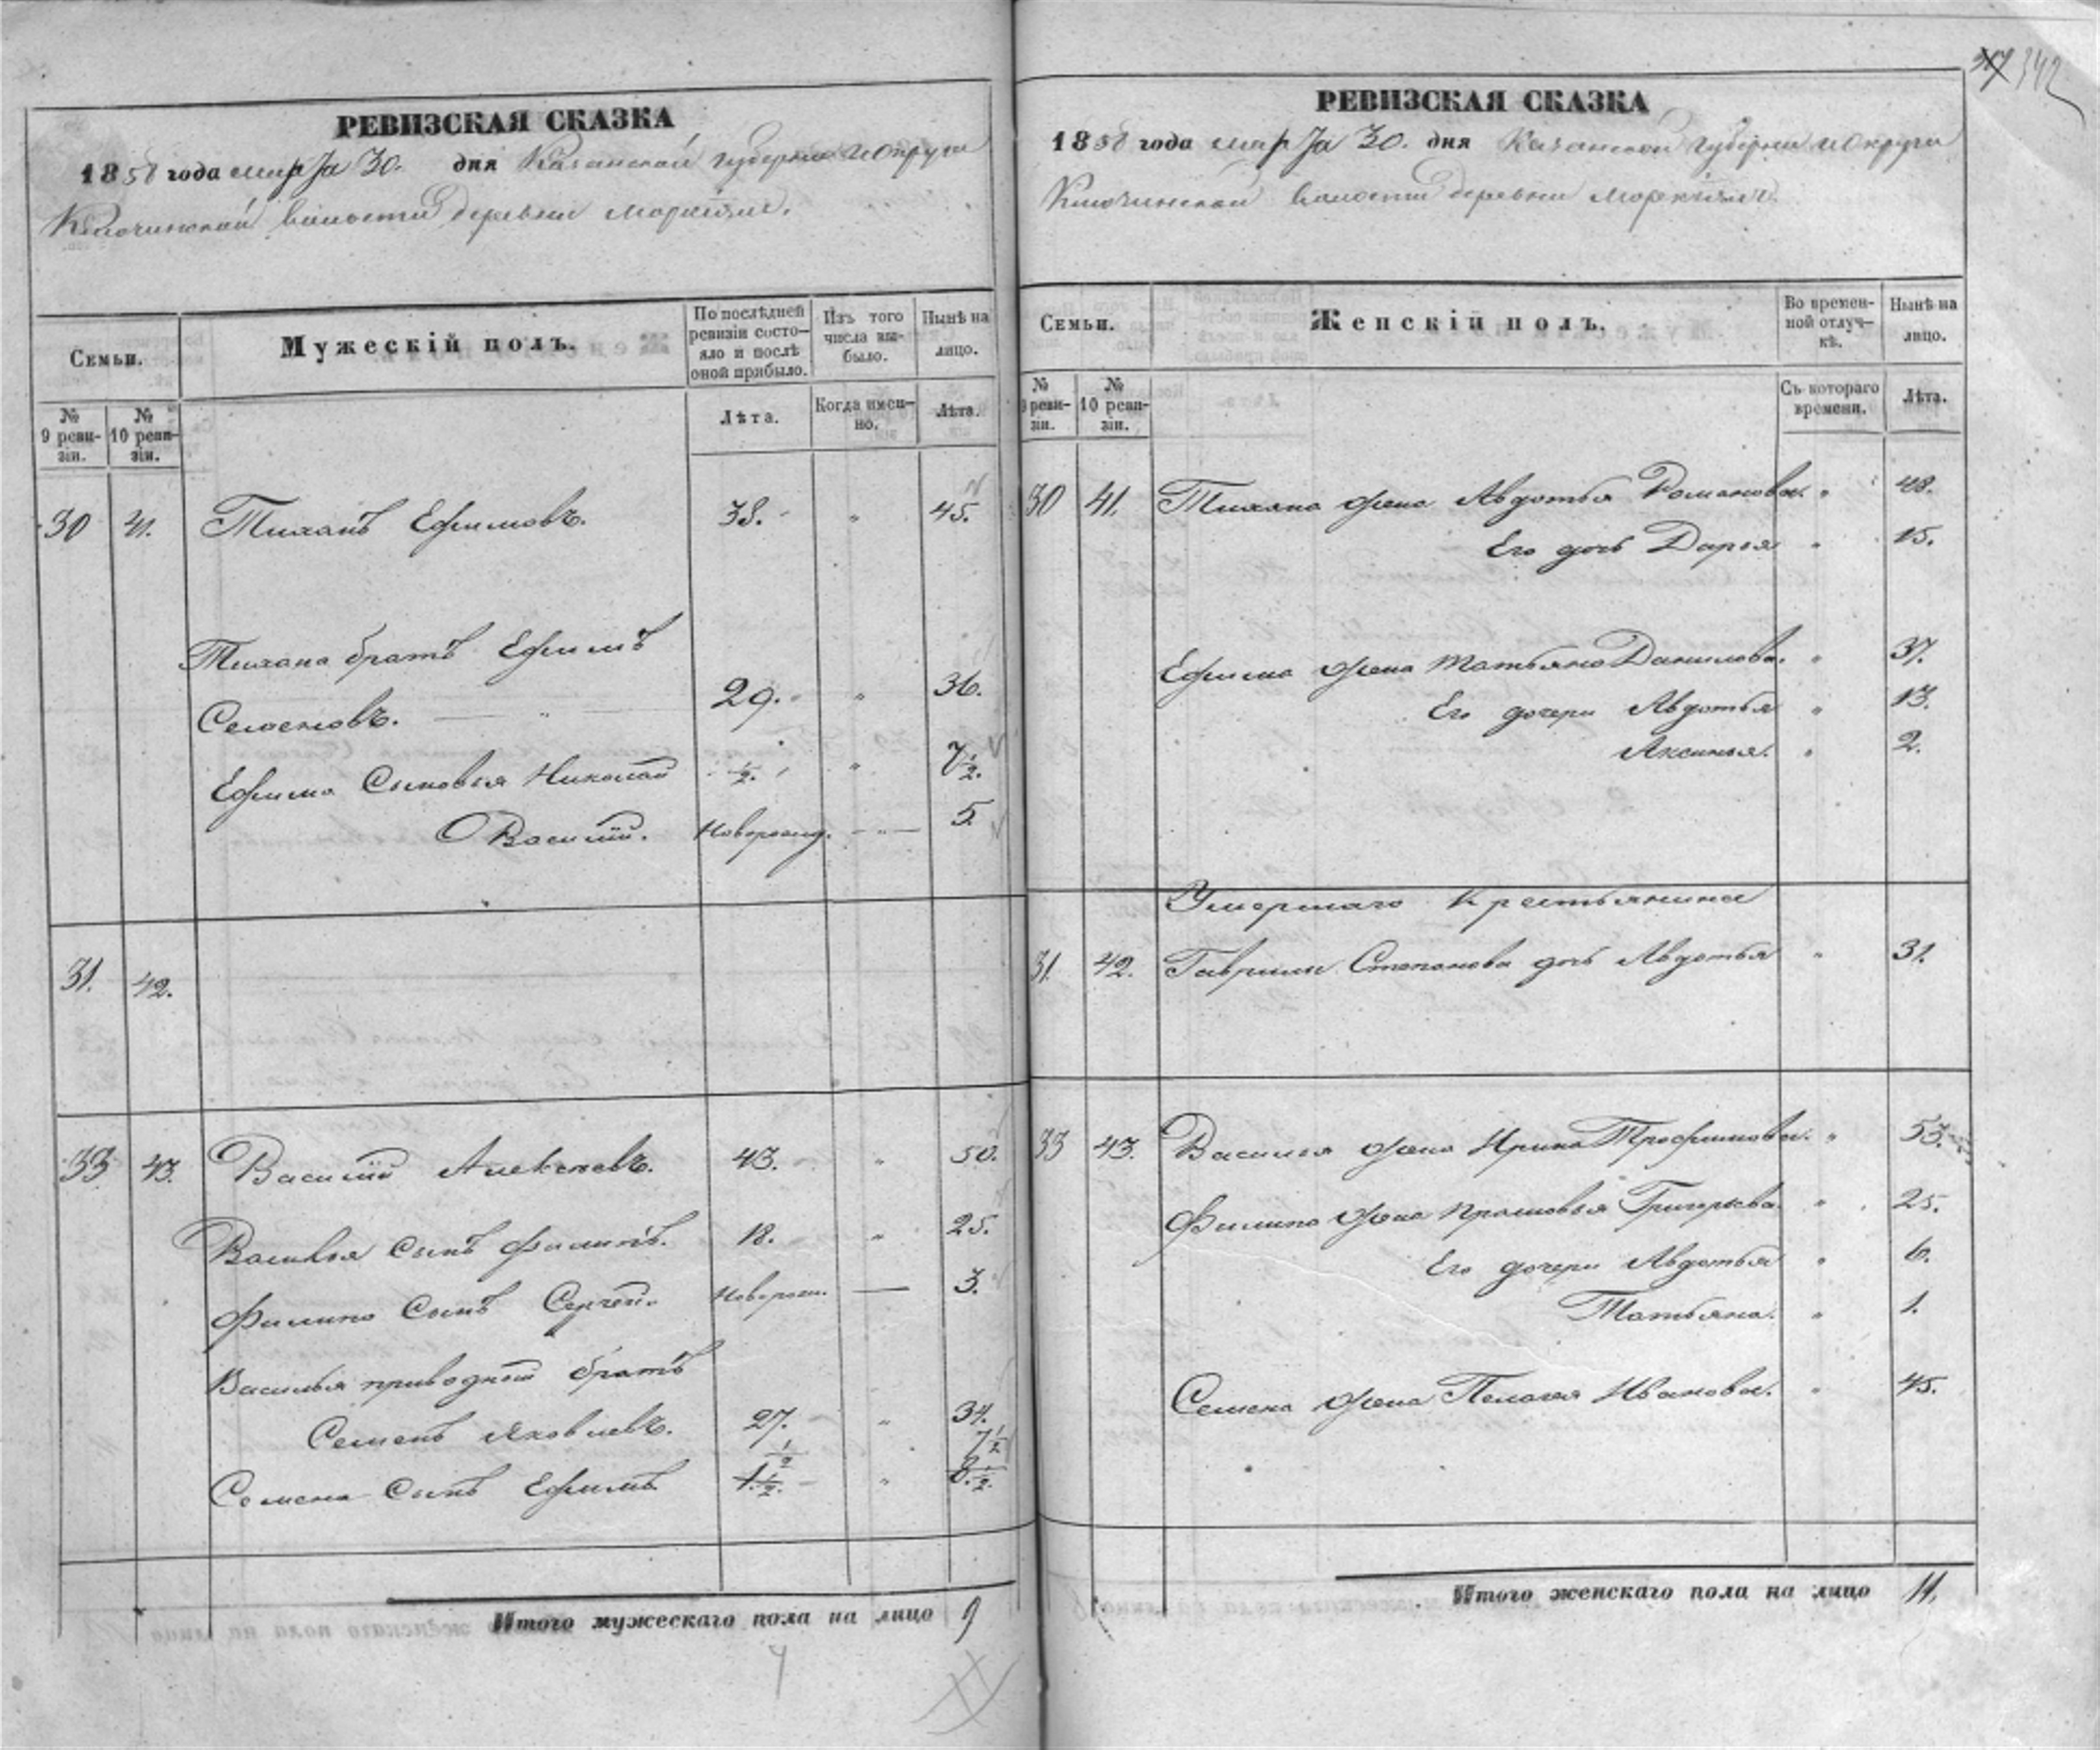 342
РЕВИЗСКАЯ СКАЗКА
1858 года марта 30. дня Казанской губернии и округи
Ключинской волости деревни
Семьи.
Мужескій полъ.
По послѣдней ревизіи состо-
яло и послѣ
оной прибыло.
Изъ того
числа вы-
было.
Нынѣ на
лицо.
№
9 реви-
зіи.
№
10 реви-
зіи.
Лѣта.
Когда имен-
но.
Лѣта.
30 41. Тиханъ Ефимовъ. 38. " 45.
Тихана братъ Ефимъ
Семеновъ. — " — 29. " 36.
Ефима Сыновья Николай 1/2. " 7 1/2.
Василій. Новорожд. — " — 5.
31. 42.
33 43. Василій Алексѣевъ. 43. " 50.
Василья Сынъ Филипъ. 18. " 25.
Филипа Сынъ Сергѣй. Новорож. — 3.
Василья приводной братъ
Семенъ Яковлевъ. 27. " 34.
1/2 7 1/2
Семена Сынъ Ефимъ 1 1/2. " 8 1/2.
Итого мужескаго пола на лицо 9
РЕВИЗСКАЯ СКАЗКА
1858 года марта 30. дня Казанской губернии и округи
Ключинской волости деревни
Семьи.
Женскій полъ.
Во времен-
ной отлуч-
кѣ.
Нынѣ на
лицо.
№
9 реви-
зіи.
№
10 реви-
зіи.
Съ котораго
времени.
Лѣта.
30 41. Тихана жена Авдотья Романова. " 48.
Его дочь Дарья " 15.
Ефима жена Татьяна Данилова. " 37.
Его дочери Авдотья " 13.
Аксинья. " 2.
Умершаго Крестьянина
31. 42. Гаврилы Степанова дочь Авдотья " 31.
33 43. Василья жена Ирина Трофимова. " 53.
Филипа жена Прасковья Григорьева. " 25.
Его дочери Авдотья " 6.
Татьяна. " 1.
Семена жена Пелагея Иванова. " 45.
Итого женскаго пола на лицо 11.